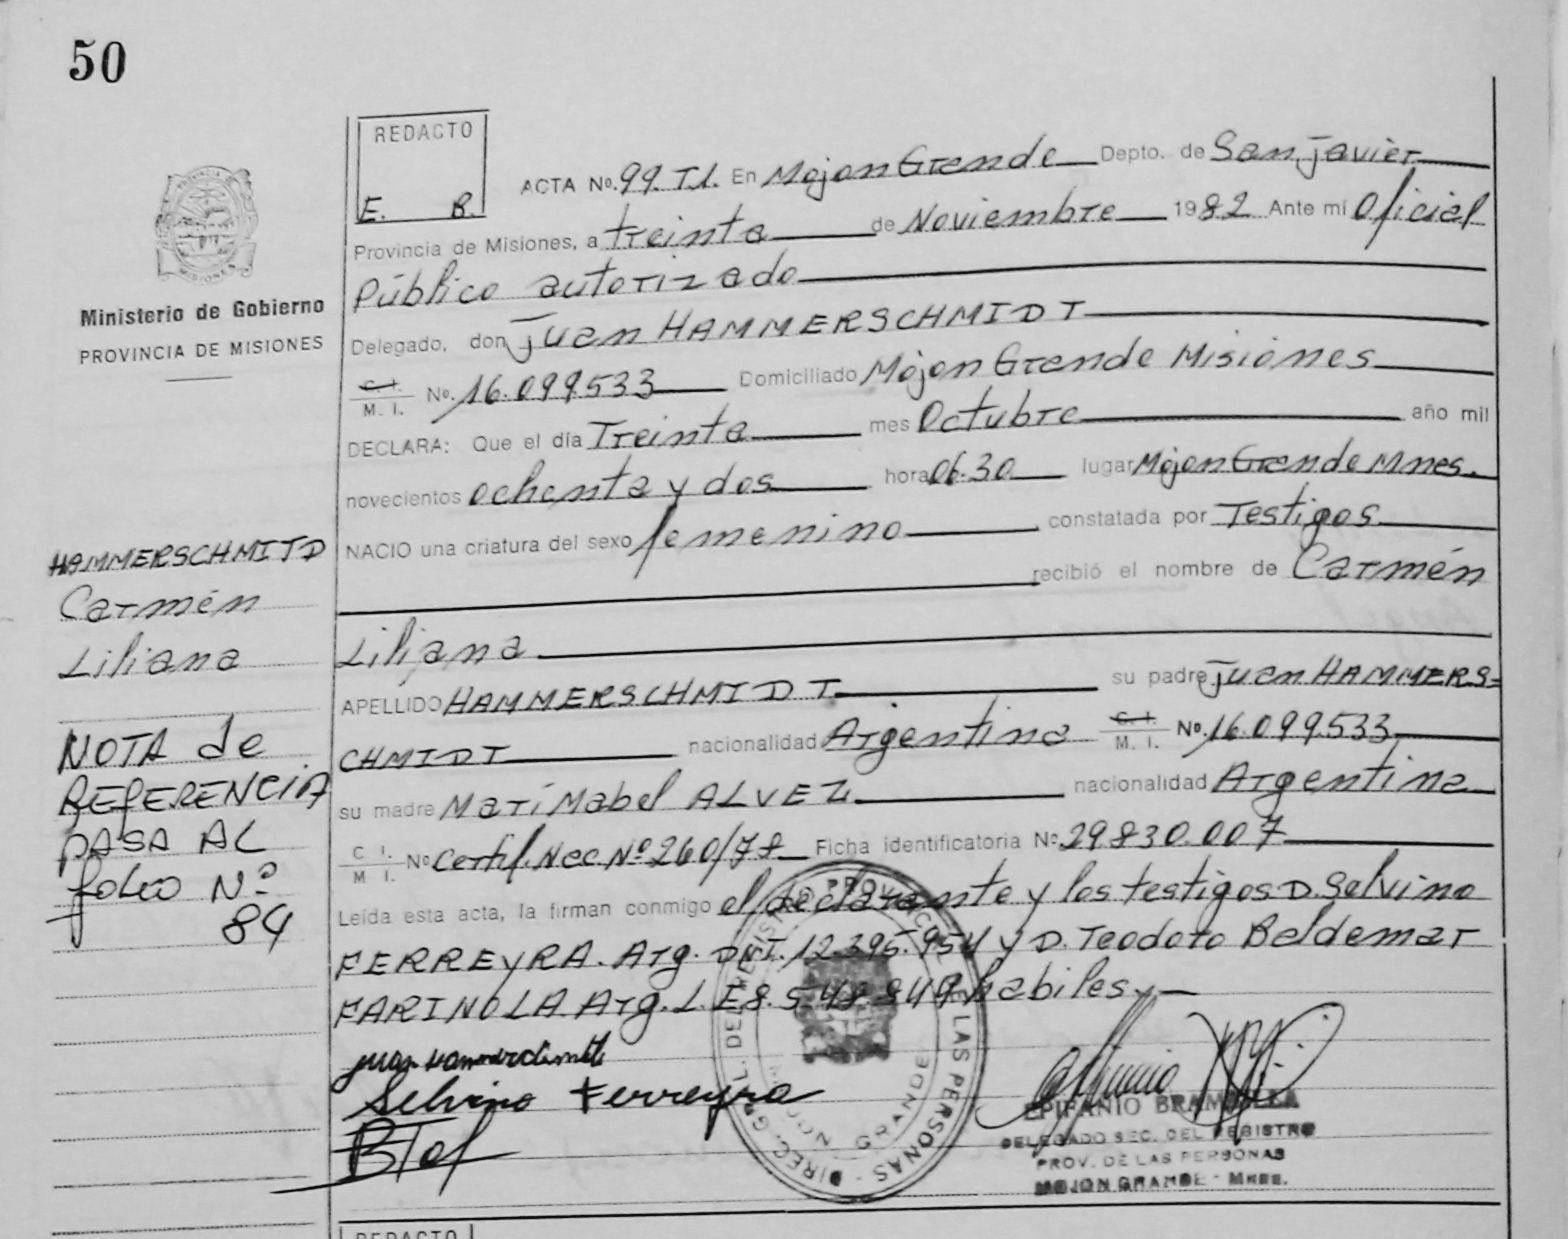 50
REDACTO
E. B.
ACTA No. 99 T.I. En Mojon Grande Depto. de San Javier
Provincia de Misiones, a treinta de Noviembre 1982 Ante mí Oficial
Público autorizado
Ministerio de Gobierno
PROVINCIA DE MISIONES
Delegado, don Juan HAMMERSCHMIDT
C. I. M. I. No. 16.099.533 Domiciliado Mojon Grande Misiones
DECLARA: Que el día Treinta mes Octubre año mil
novecientos ochenta y dos hora 06.30 lugar Mojon Grande Mnes.
NACIO una criatura del sexo femenino constatada por Testigos
recibió el nombre de Carmén
Liliana
APELLIDO HAMMERSCHMIDT su padre Juan HAMMERS-
CHMIDT nacionalidad Argentino C. I. M. I. No. 16.099.533
su madre Marí Mabel ALVEZ nacionalidad Argentina
C I. M I. No Certif. Nac. Nº 260/78 Ficha identificatoria Nº 29.830.007
Leída esta acta, la firman conmigo el declarante y los testigos D. Selvino
FERREYRA. Arg. DNI. 12.395.954 y D. Teodoro Beldemar
FARINOLA Arg. L.E 8.548.849 habiles.-
HAMMERSCHMITD
Carmén
Liliana
NOTA de
REFERENCIA
PASA AL
folio Nº
84
Selvino Ferreyra
DIREC. GRAL. DEL REGISTRO PROVINCIAL DE LAS PERSONAS
MOJON GRANDE
EPIFANIO BRAMBILLA
DELEGADO SEC. DEL REGISTRO
PROV. DE LAS PERSONAS
MOJON GRANDE - MNES.
REDACTO